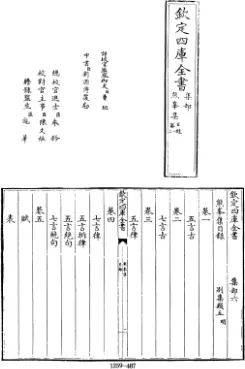 欽定四庫全書
集部
熊峯集
詳校官監察御史臣曹錫
中書臣劉源溥覆勘
總校官進士臣朱鈐
校對官主事臣陳文樞
謄錄監生臣
欽定四庫全書
集部六
熊峯集目錄
別集類五 明
卷一
五言古
卷二
七言古
卷三
五言律
欽定四庫全書
卷四
七言律
五言排律
五言絶句
七言絶句
卷五
賦
表
1259-487